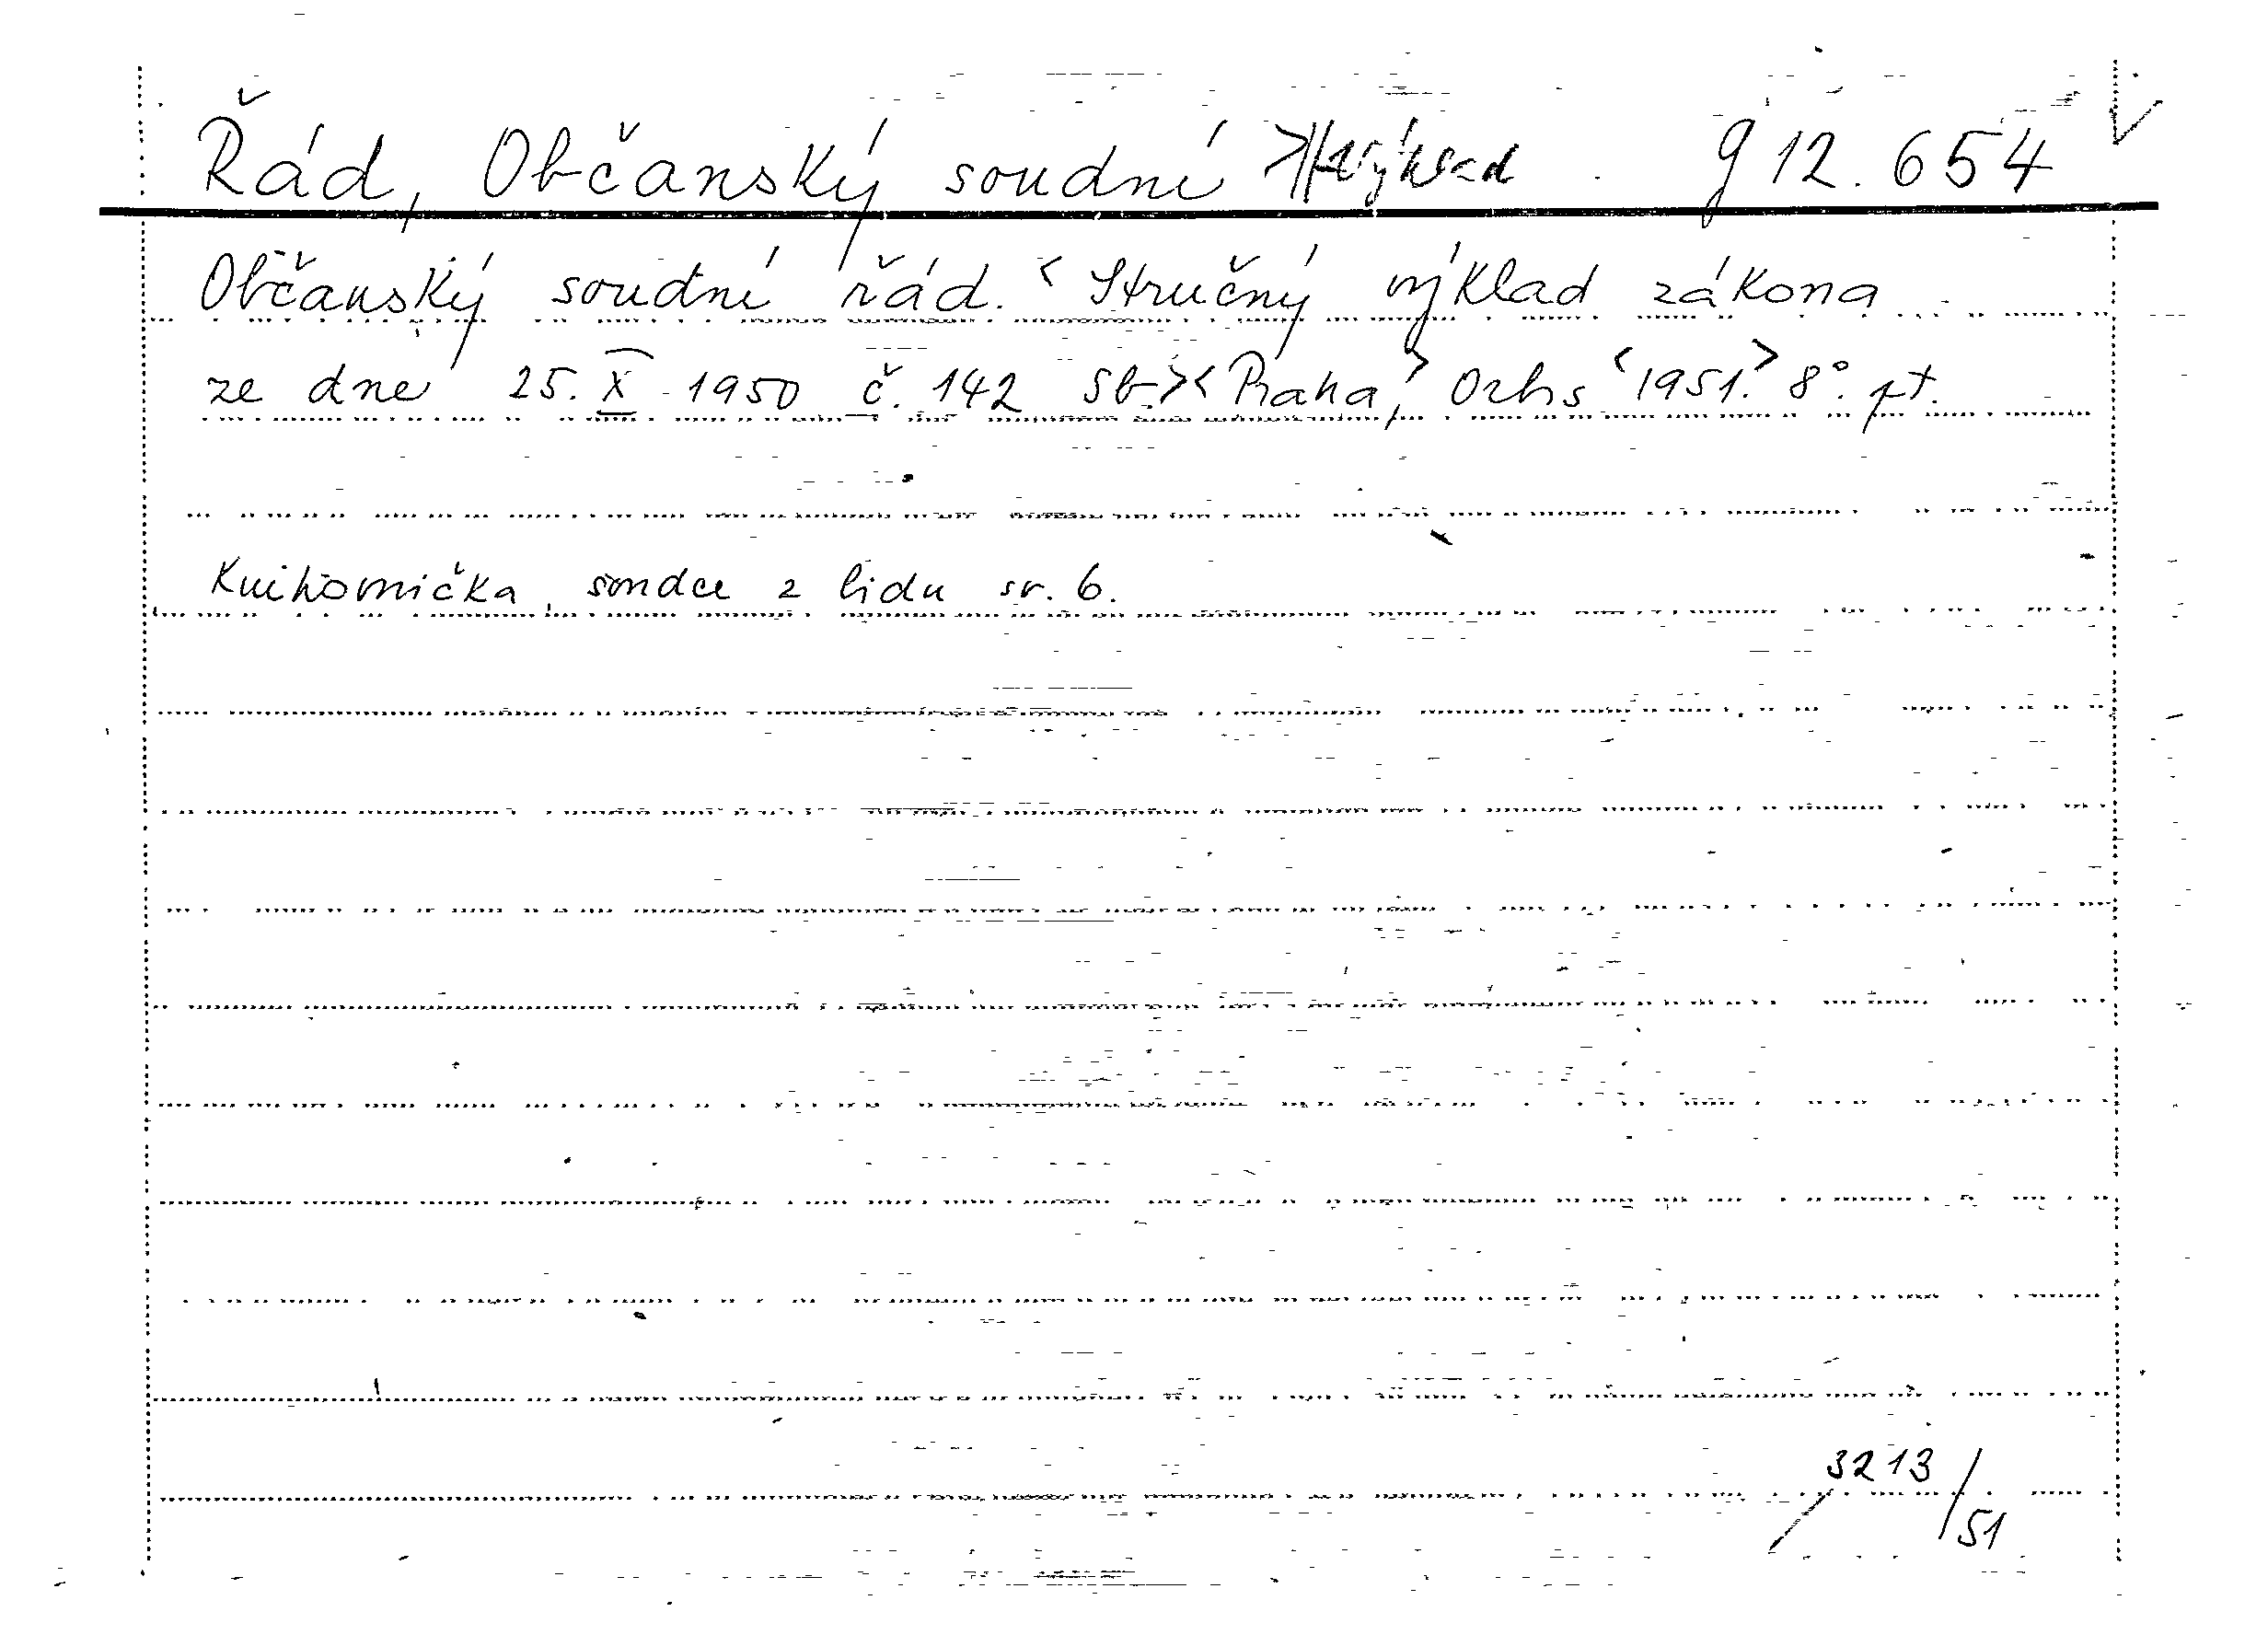 Řád, Občanský soudní Výklad g 12.654
Občanský soudní řád. < Stručný výklad zákona
ze dne 25. X. 1950 č. 142 Sb. > < Praha, > Orbis < 1951. > 8°. pt.
Knihovnička soudce z lidu sv. 6.
3213/51